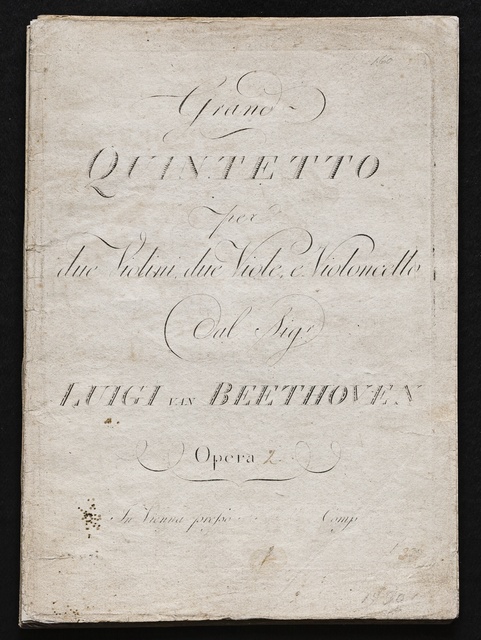 Grand
QUINTETTO
per
due Violini, due Viole, e Violoncello
dal Sigr
LUIGI VAN BEETHOVEN
Opera 2
In Vienna presso Comp